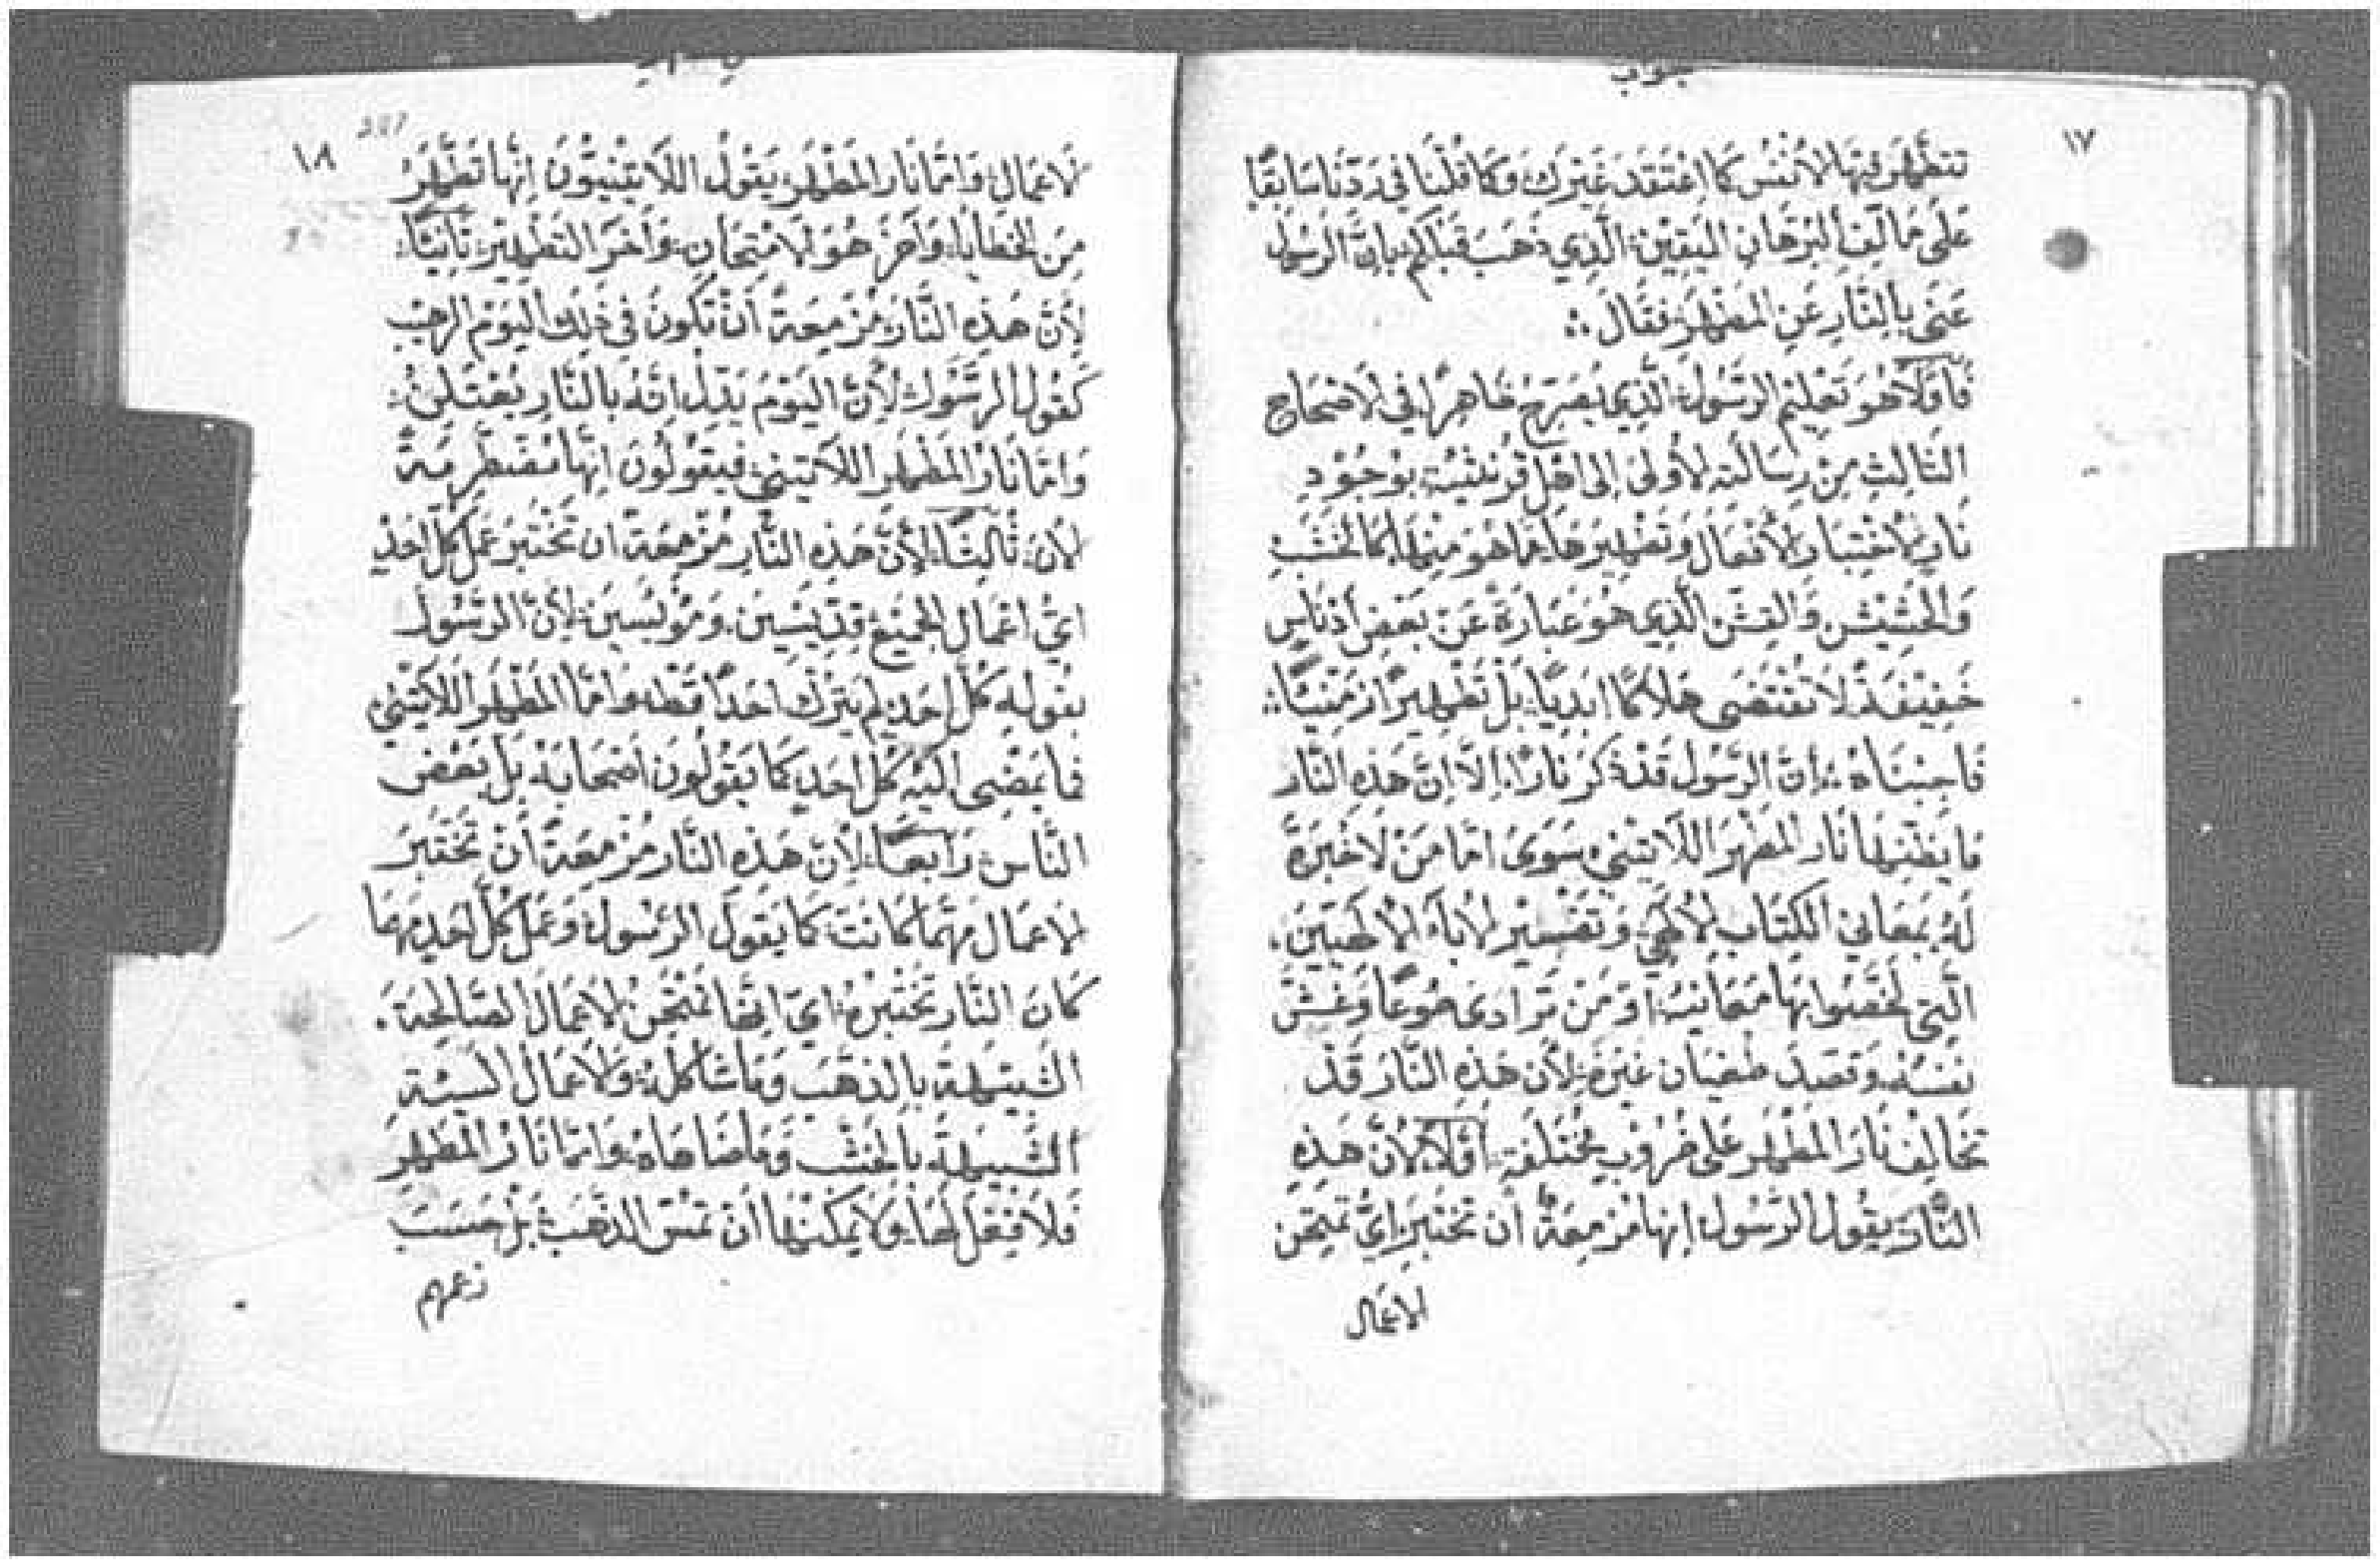 جواب
١٧
تتطهر فيها الأنفس كما اعتقد غيرك وكما قلنا في ردنا سابقًا
على مالف البرهان اليقين الذي ذهب قبلكم بان الرسول
عنى بالنار عن المطهر فقال
فاولًا هو تعليم الرسول الذي يصرح ظاهرًا في الاصحاح
الثالث من رسالته الاولى الى اهل قرنثية بوجود
نار لاختبار الأفعال وتطهيرها مما هو منها كالخشب
والحشيش والقش الذي هو عبارة عن بعض أدناس
خفيفة لا تقتضى هلاكًا ابديًا بل تطهيرًا زمنيًا
فاجبناه ان الرسول قد ذكر نارًا الا ان هذه النار
ما يظنها نار المطهر اللاتيني سوى اما من لا خبرة
له بمعاني الكتاب الالهي وتفسير الاباء الالهيين
التي لخصوا بها معانيه او من تراءى طوعًا وغش
نفسه وقصد طغيان غيره لأن هذه النار قد
تخالف نار المطهر على ضروب مختلفة اولًا لأن هذه
النار يقول الرسول انها مزمعة أن تختبر اي تمتحن
الاعمال
١٨
الاعمال واما نار المطهر يقول اللاتينيون انها تطهر
من الخطايا وآخر هو الامتحان وآخر التطهير ثانيًا
لأن هذه النار مزمعة أن تكون في ذلك اليوم الرهيب
كقول الرسول لأن اليوم يدل انه بالنار يعتلن
واما نار المطهر اللاتيني فيقولون انها مضطرمة
الآن ثالثًا لأن هذه النار مزمعة ان تختبر عمل كل احد
اي اعمال الجميع قديسين ومؤيسين لأن الرسول
بقوله كل احد لم يترك احدًا قط واما المطهر اللاتيني
فما يمضى اليه كل احد كما يقولون اصحابه بل بعض
الناس رابعًا لأن هذه النار مزمعة أن تختبر
الاعمال مهما كانت كما يقول الرسول وعمل كل احد مهما
كان النار تختبره اي انها تمتحن الاعمال الصالحة
الشبيهة بالذهب وما شاكله والاعمال السيئة
الشبيهة بالخشب وما ضاهاه واما نار المطهر
فلا فعل لها ولا يمكنها أن تمس الذهب بل حسب
زعمهم